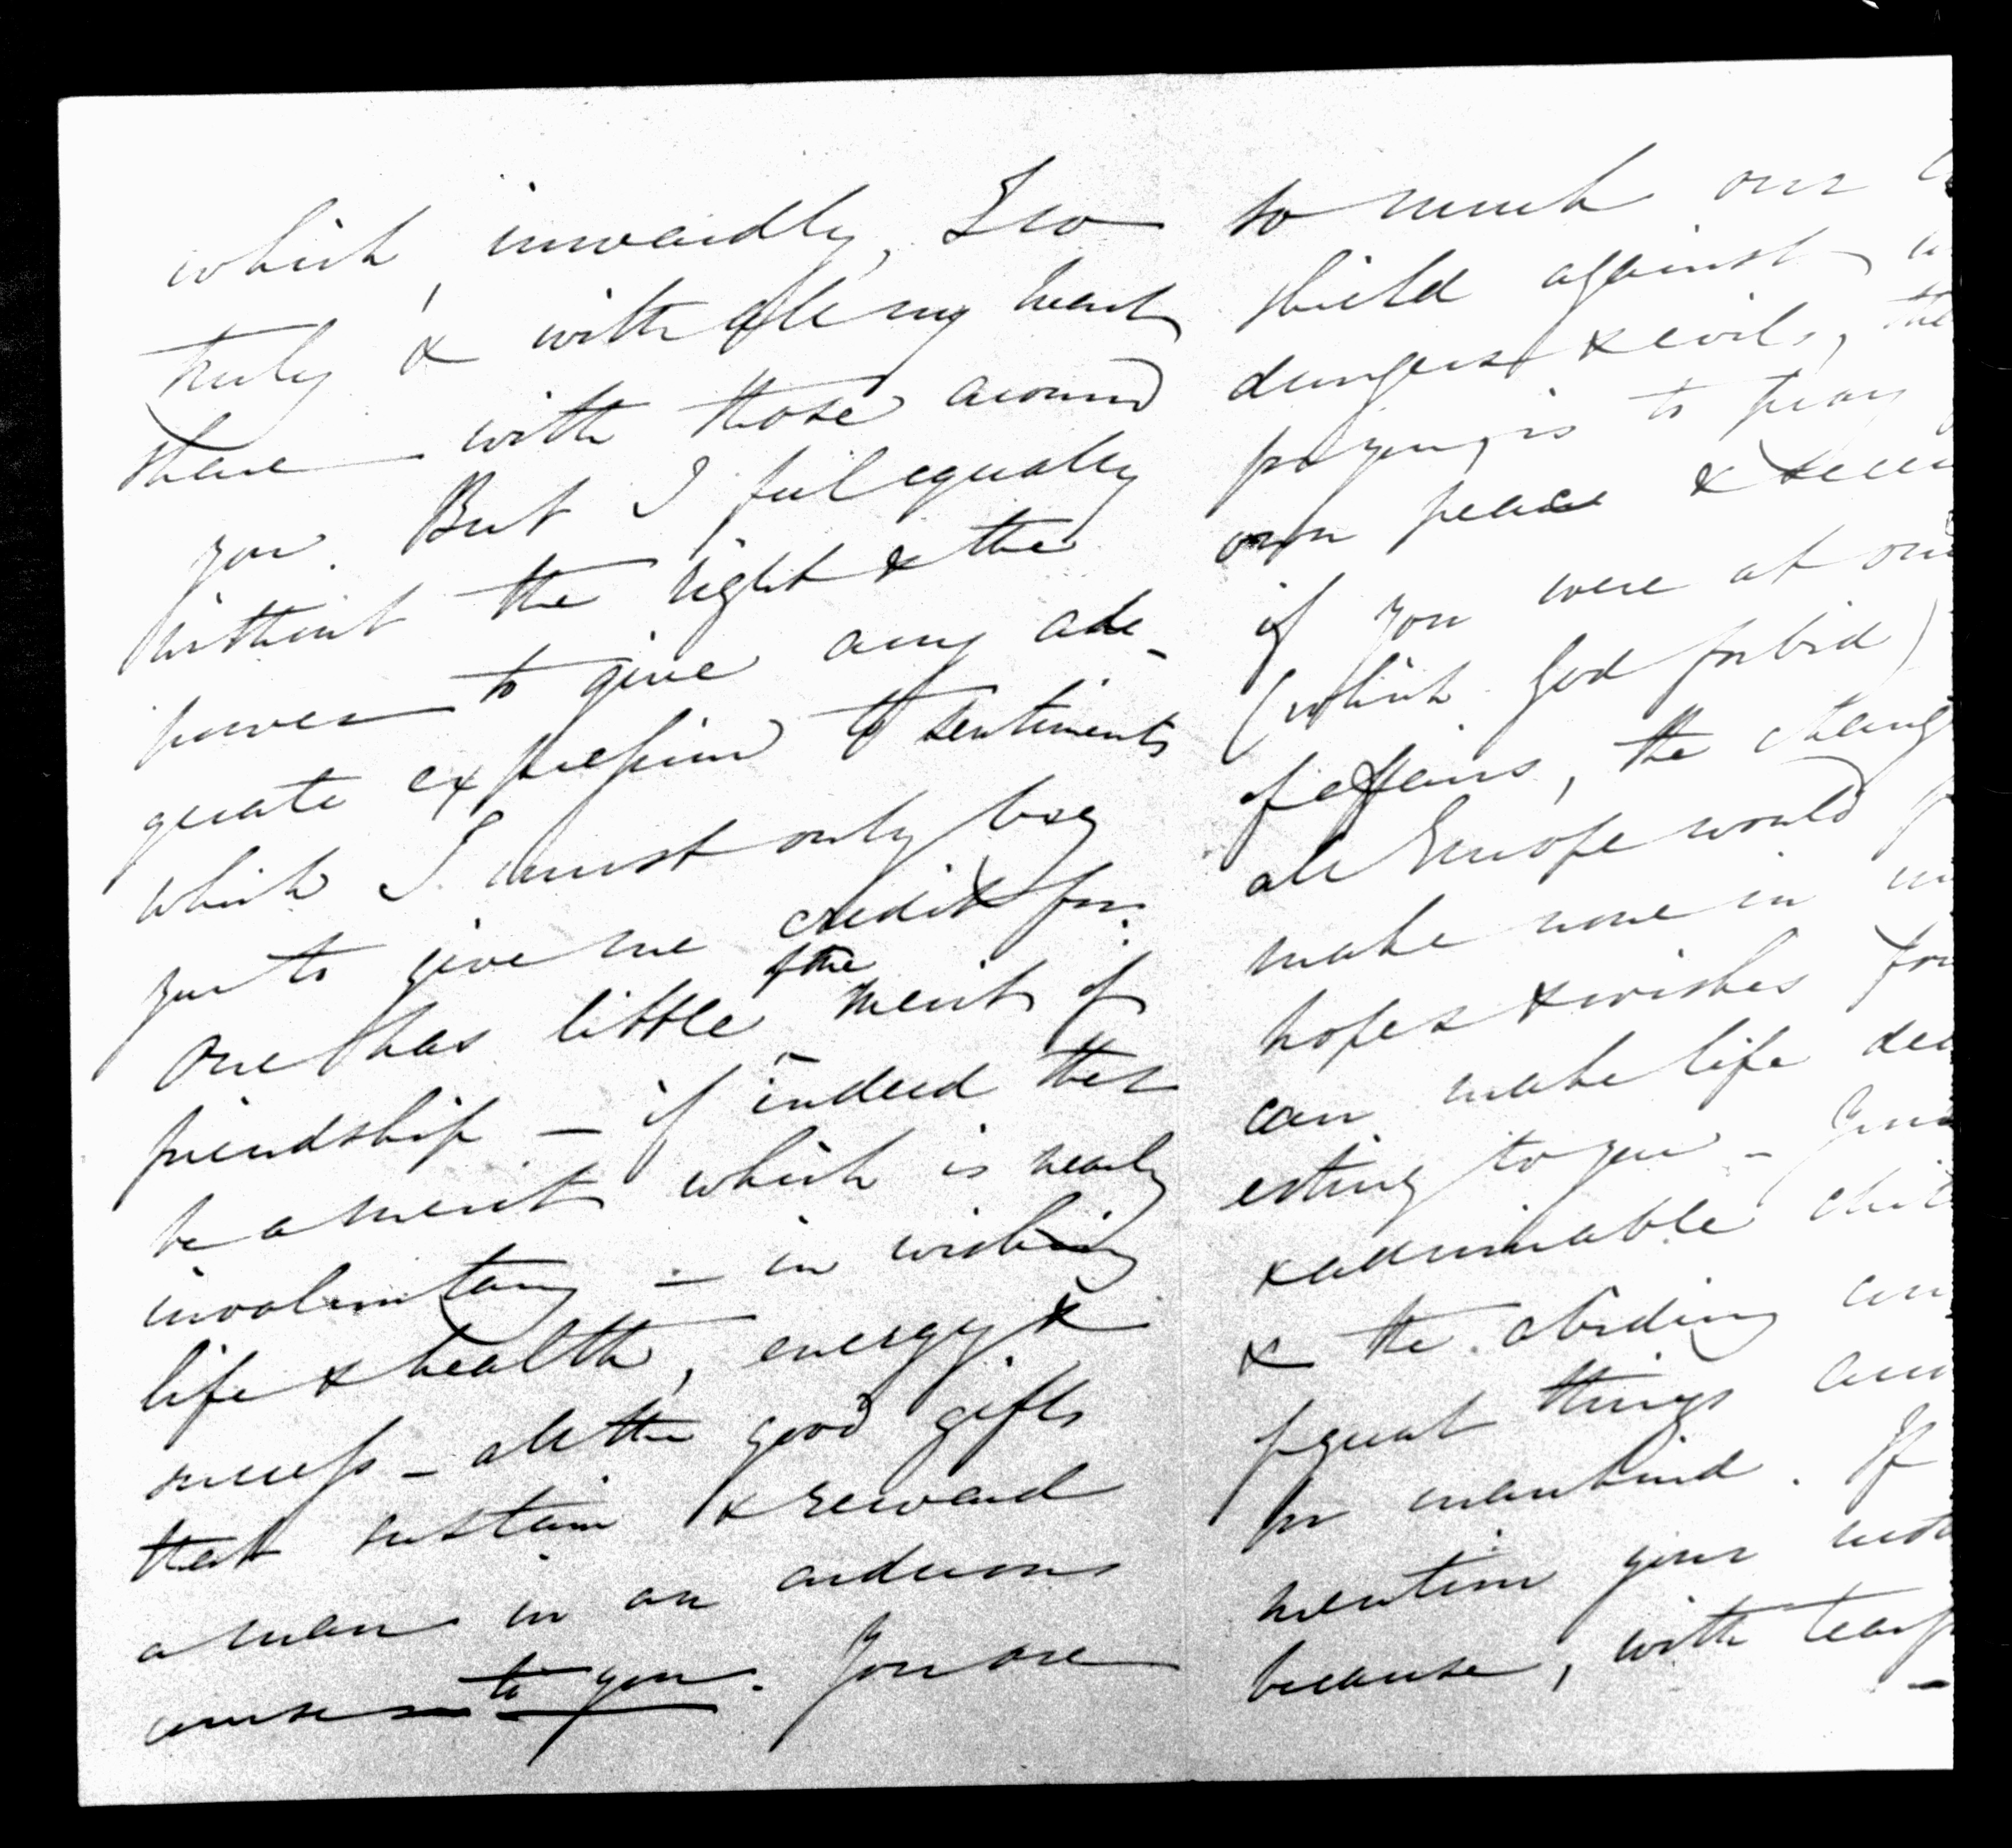 which, inwardly, I so
truly & with all my heart
share with those around
you. But I feel equally
without the right & the
power to give any ade-
quate expression to sentiments
which I must only beg
you to give me credit for.
One has little the merit of
friendship – if indeed that
be a merit which is nearly
involuntary – in wishing
life & health, energy &
success – all the good gifts
that sustain & reward
a man in an arduous
course to you. You are
so much our
shield against
dangers & evils,
for you, is to pray
own peace &
if you were at
(which God forbid)
of affairs, the
all Europe would
make none in
hopes & wishes
can make life
esting to you –
& admirable
& the abiding
great things
for mankind. If
mention your
because, with